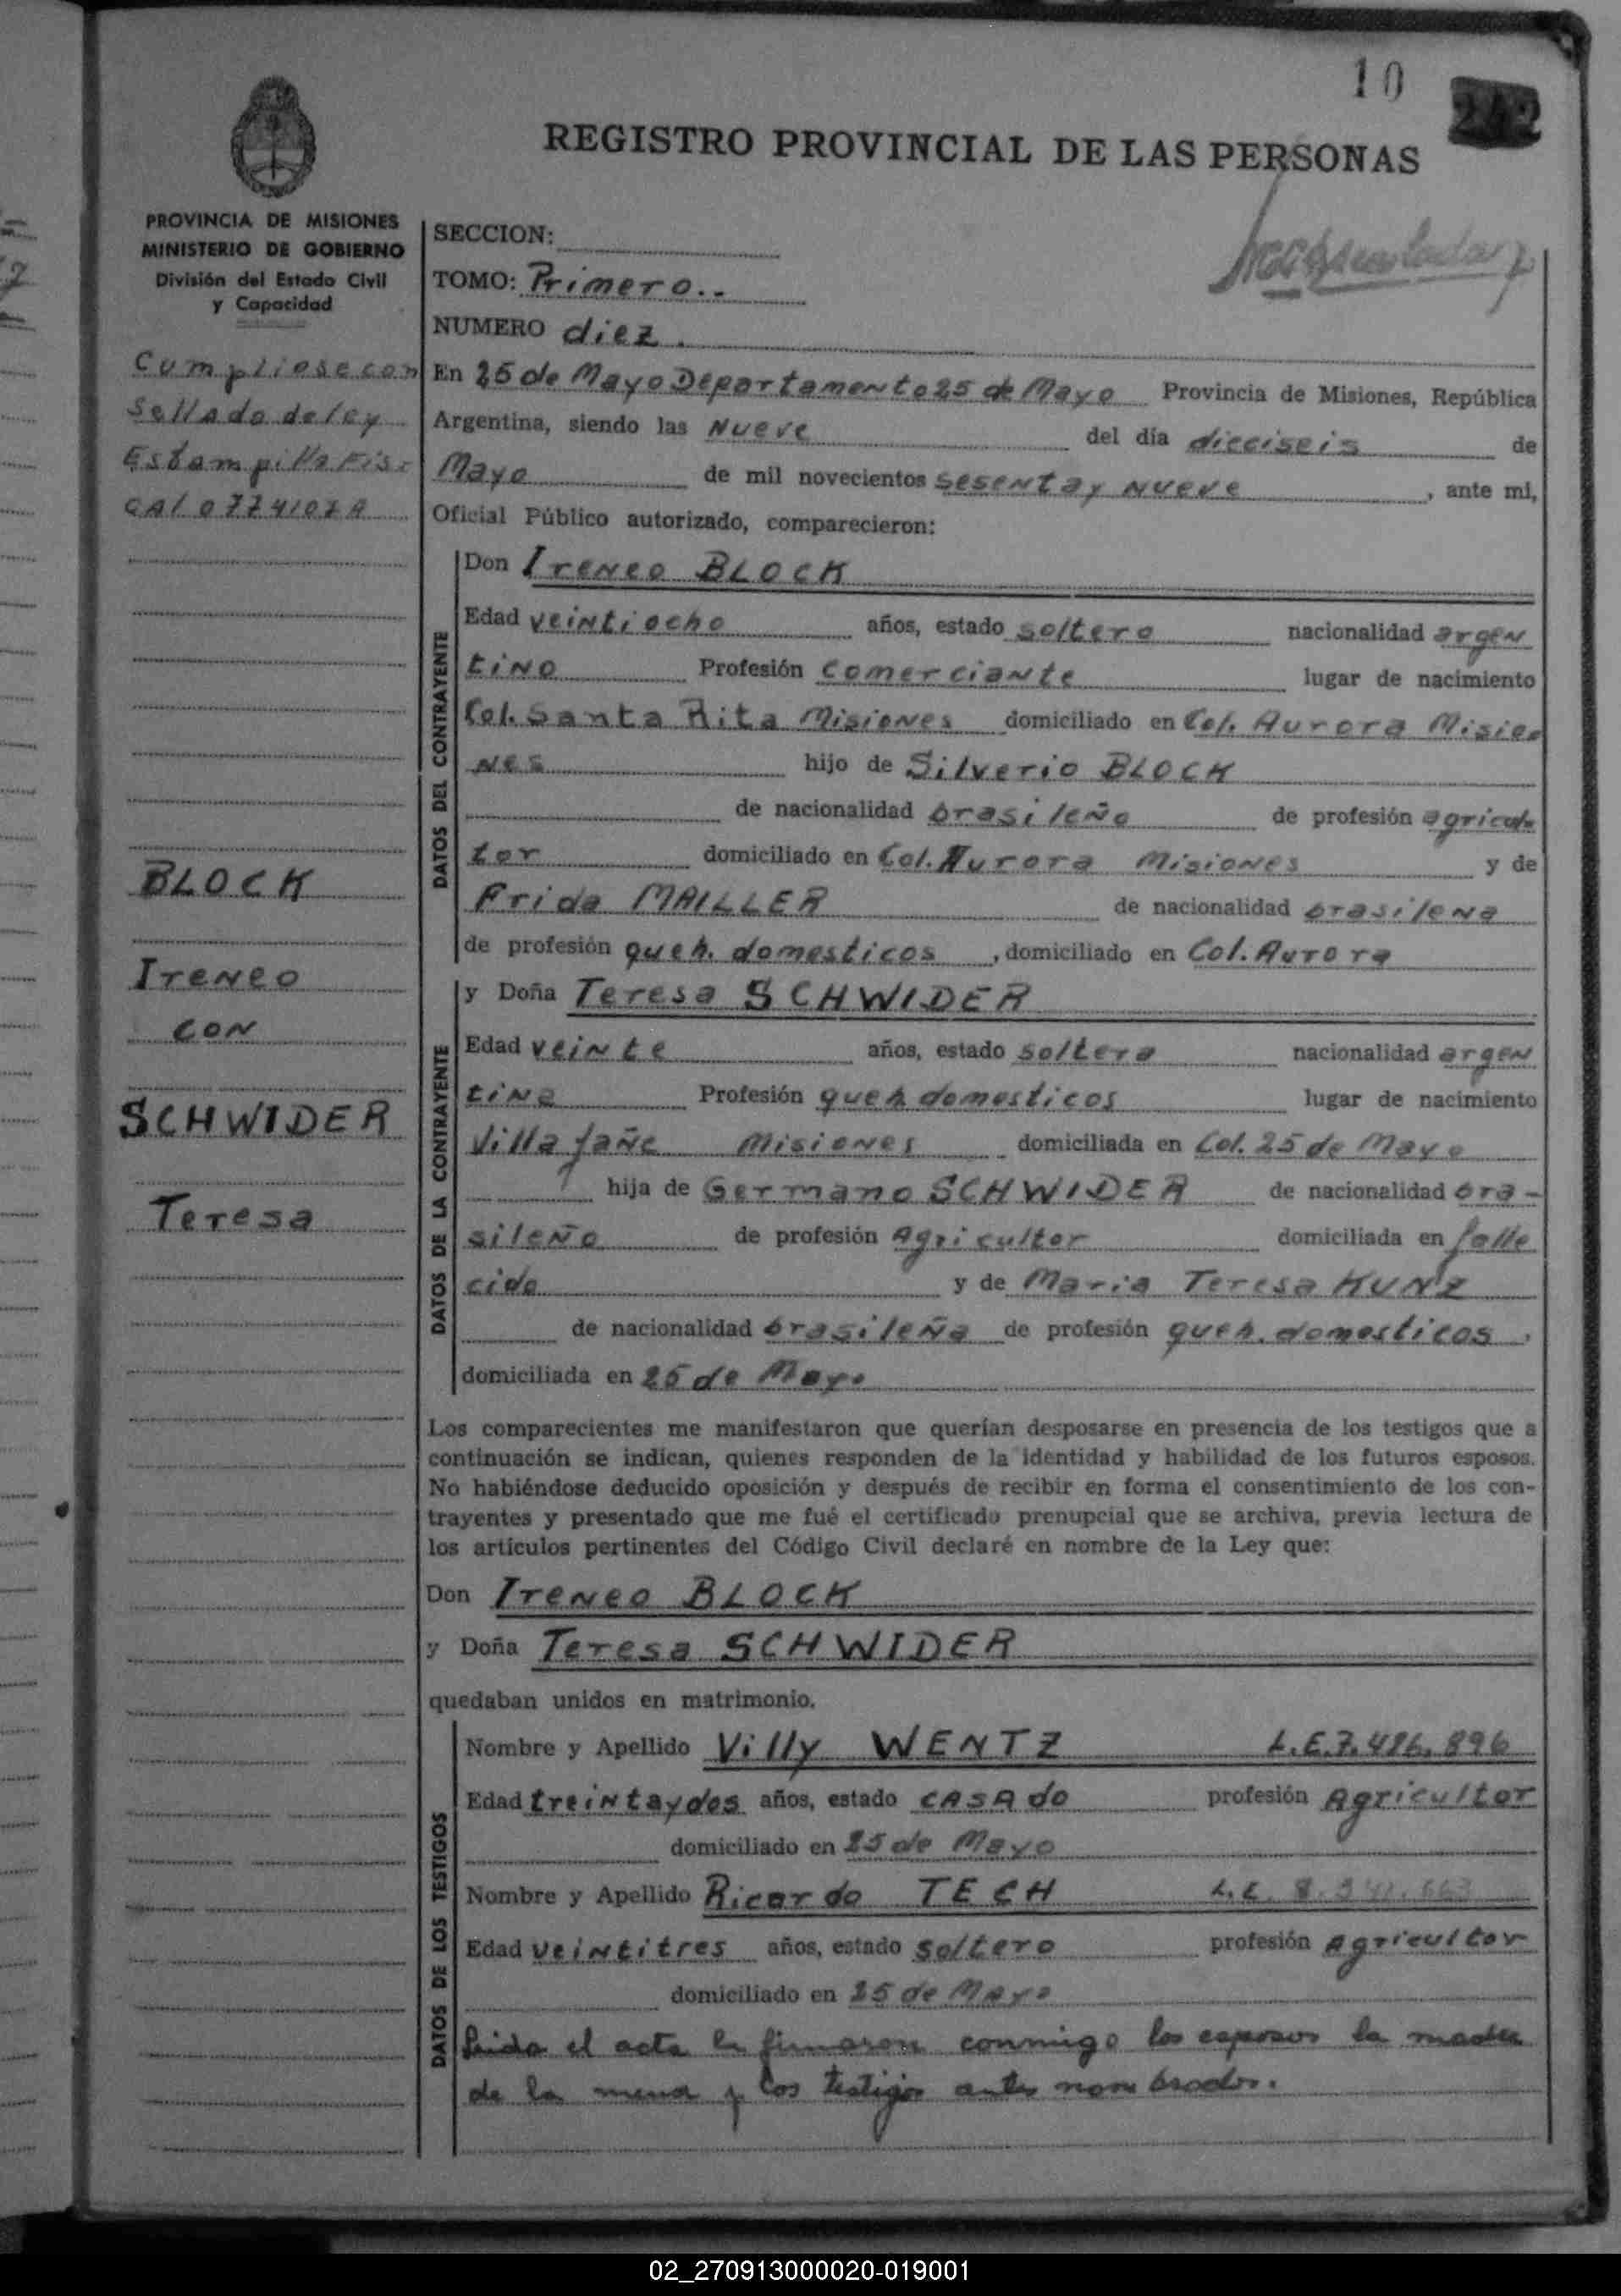 10
242
REGISTRO PROVINCIAL DE LAS PERSONAS
PROVINCIA DE MISIONES
MINISTERIO DE GOBIERNO
División del Estado Civil
y Capacidad
Cumpliose con
Sellado de ley
Estampilla Fis-
CAl 0774107A
BLOCK
Ireneo
CON
SCHWIDER
Teresa
SECCION:
TOMO: Primero..
NUMERO diez.
En 25 de Mayo Departamento 25 de Mayo Provincia de Misiones, República
Argentina, siendo las Nueve del día dieciseis de
Mayo de mil novecientos sesenta y Nueve, ante mi,
Oficial Público autorizado, comparecieron:
DATOS DEL CONTRAYENTE
Don Ireneo BLOCK
Edad veintiocho años, estado soltero nacionalidad argen
tino Profesión comerciante lugar de nacimiento
Col. Santa Rita Misiones domiciliado en Col. Aurora Misio
nes hijo de Silverio BLOCK
de nacionalidad brasileño de profesión agricul
tor domiciliado en Col. Aurora Misiones y de
Frida MAILLER de nacionalidad brasilena
de profesión queh. domesticos, domiciliado en Col. Aurora
DATOS DE LA CONTRAYENTE
y Doña Teresa SCHWIDER
Edad veinte años, estado soltera nacionalidad argen
tina Profesión queh domesticos lugar de nacimiento
Villafañe Misiones domiciliada en Col. 25 de Mayo
hija de Germano SCHWIDER de nacionalidad bra-
sileño de profesión Agricultor domiciliada en falle
cido y de Maria Teresa KUNZ
de nacionalidad brasileña de profesión queh. domesticos,
domiciliada en 25 de Mayo
Los comparecientes me manifestaron que querían desposarse en presencia de los testigos que a
continuación se indican, quienes responden de la identidad y habilidad de los futuros esposos.
No habiéndose deducido oposición y después de recibir en forma el consentimiento de los con-
trayentes y presentado que me fué el certificado prenupcial que se archiva, previa lectura de
los artículos pertinentes del Código Civil declaré en nombre de la Ley que:
Don Ireneo BLOCK
y Doña Teresa SCHWIDER
quedaban unidos en matrimonio.
DATOS DE LOS TESTIGOS
Nombre y Apellido Villy WENTZ L.E.7.486.896
Edad treintaydos años, estado CASAdo profesión Agricultor
domiciliado en 25 de Mayo
Nombre y Apellido Ricardo TECH L.E. 8.
Edad veintitres años, estado soltero profesión Agricultor
domiciliado en 25 de Mayo
Leida el acta la firmaron conmigo los esposos la madre
de la menor y los testigos antes nombrados.
02_270913000020-019001